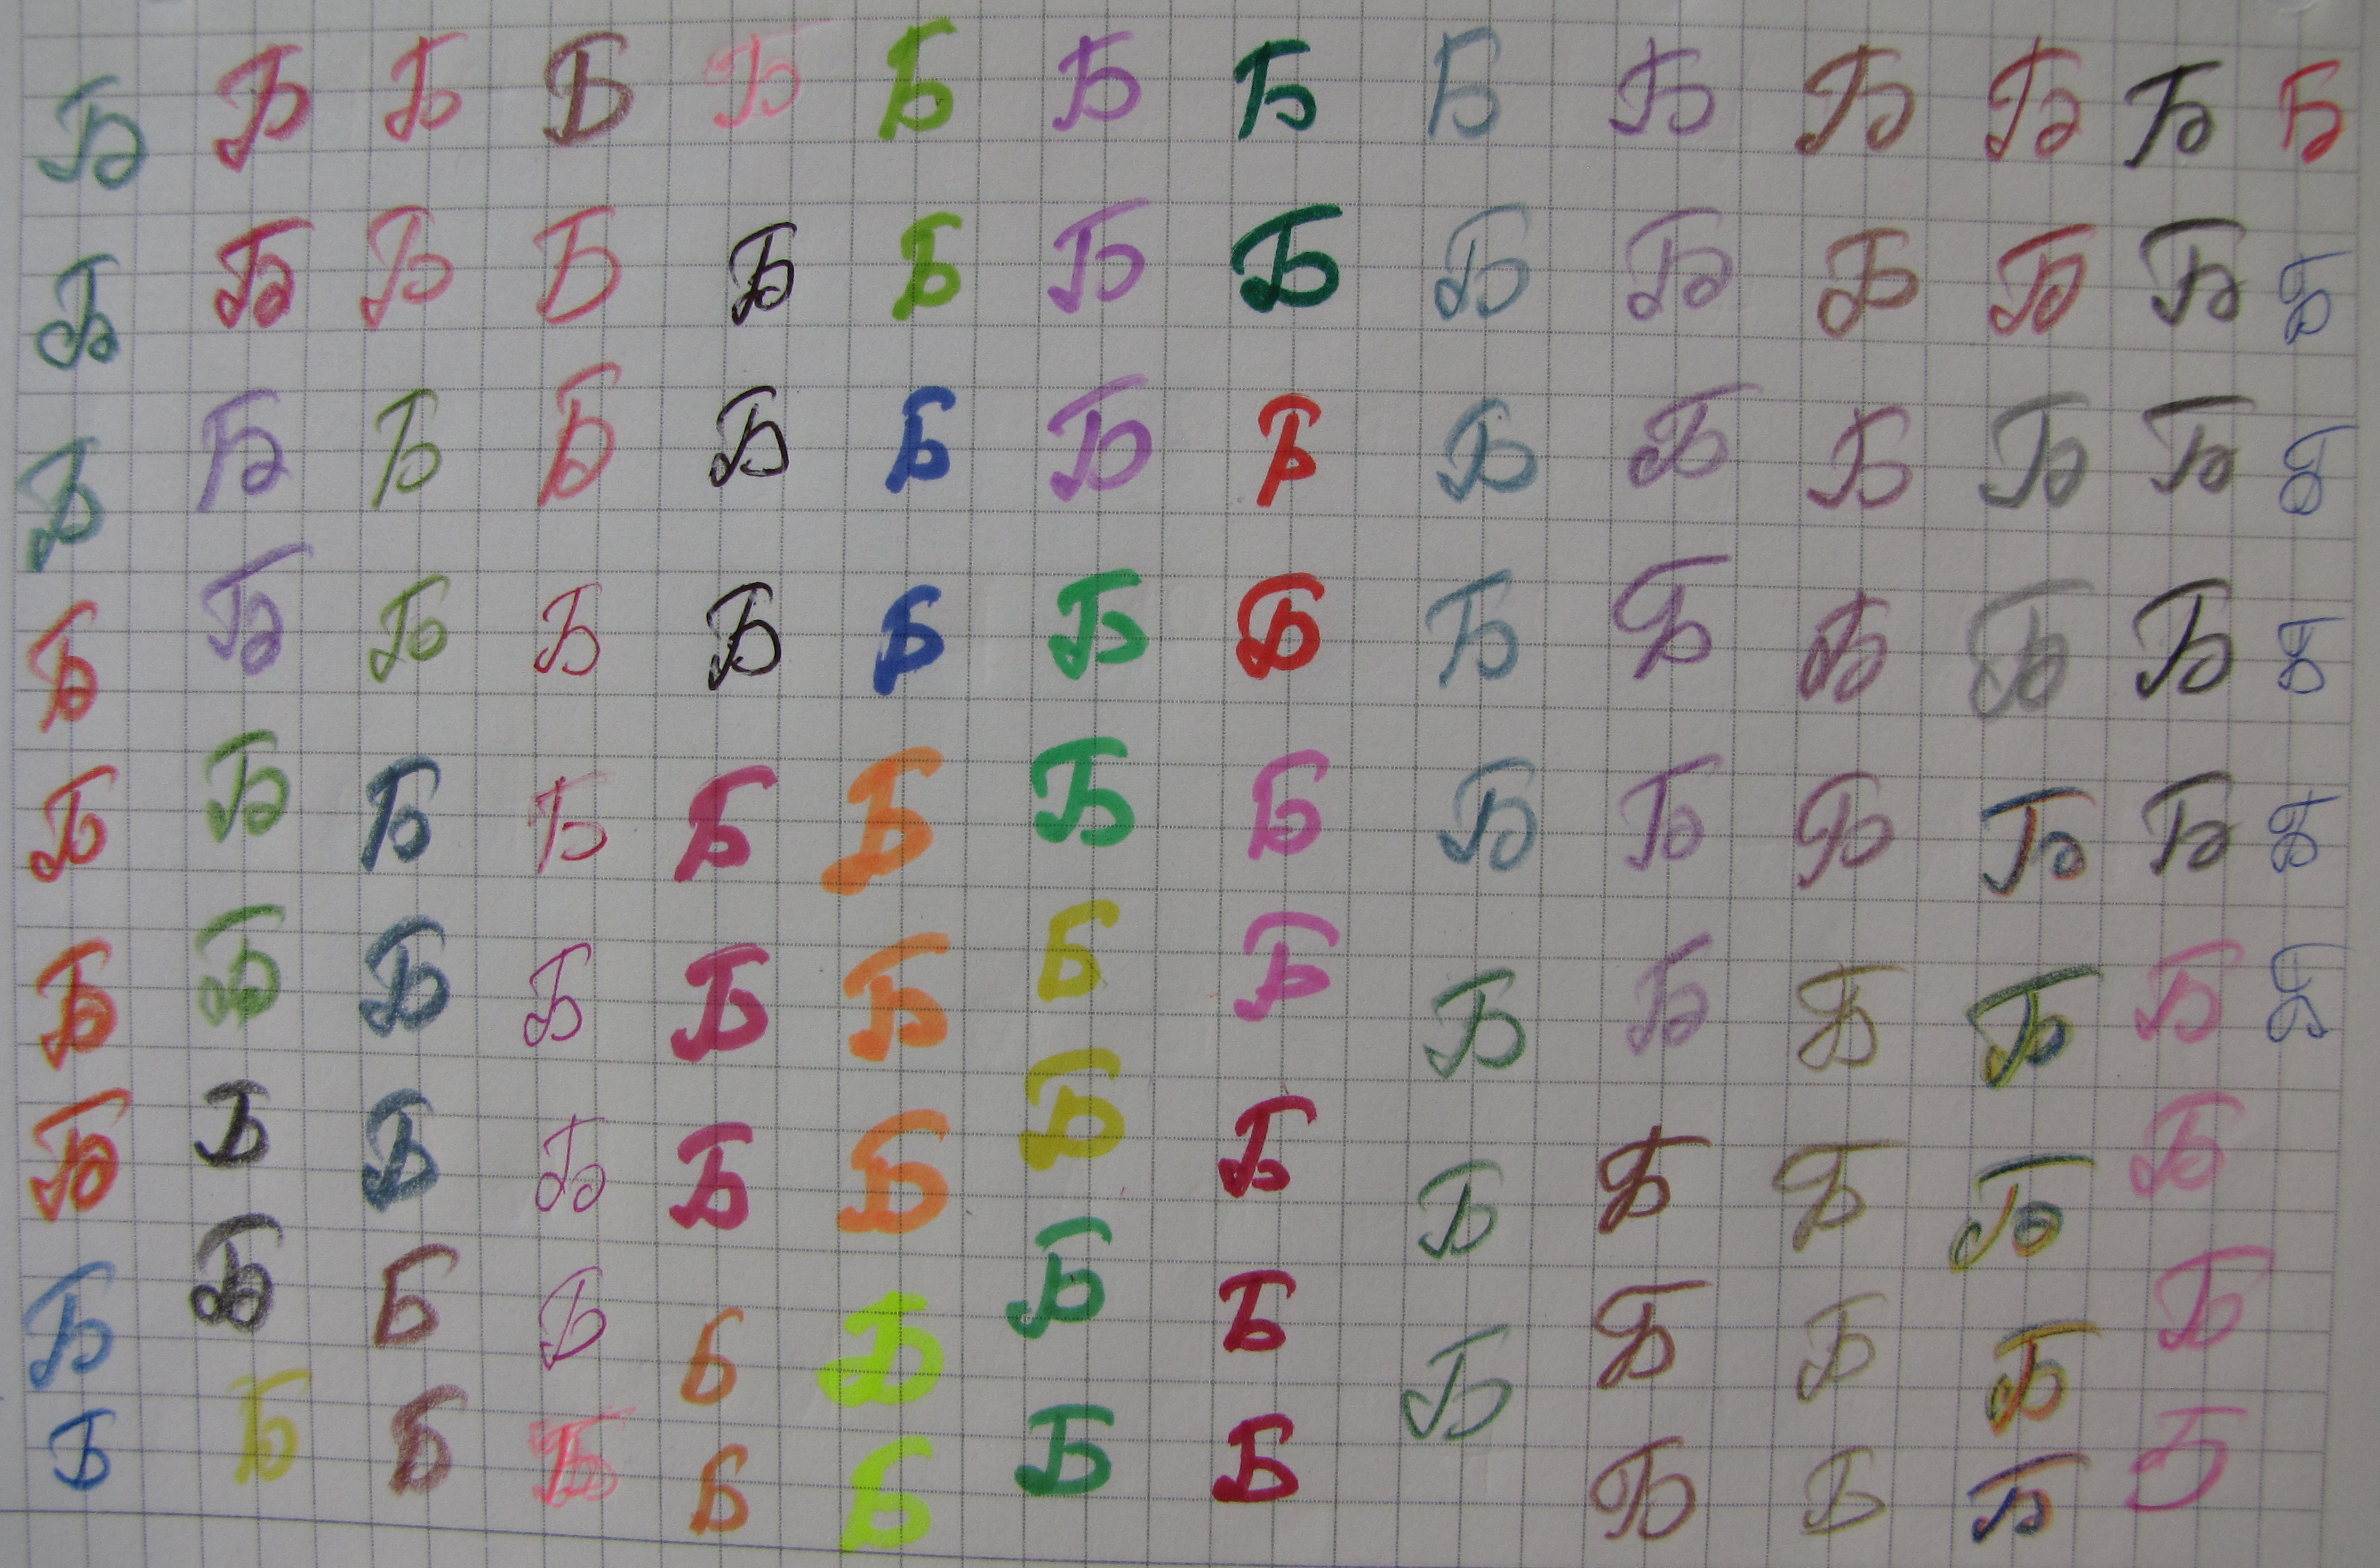 Б Б Б Б Б Б Б Б Б Б Б Б Б Б
Б Б Б Б Б Б Б Б Б Б Б Б Б Б
Б Б Б Б Б Б Б Б Б Б Б Б Б Б
Б Б Б Б Б Б Б Б Б Б Б Б Б Б
Б Б Б Б Б Б Б Б Б Б Б Б Б Б
Б Б Б Б Б Б Б Б Б Б Б Б Б Б
Б Б Б Б Б Б Б Б Б Б Б Б Б
Б Б Б Б Б Б Б Б Б Б Б Б Б
Б Б Б Б Б Б Б Б Б Б Б Б